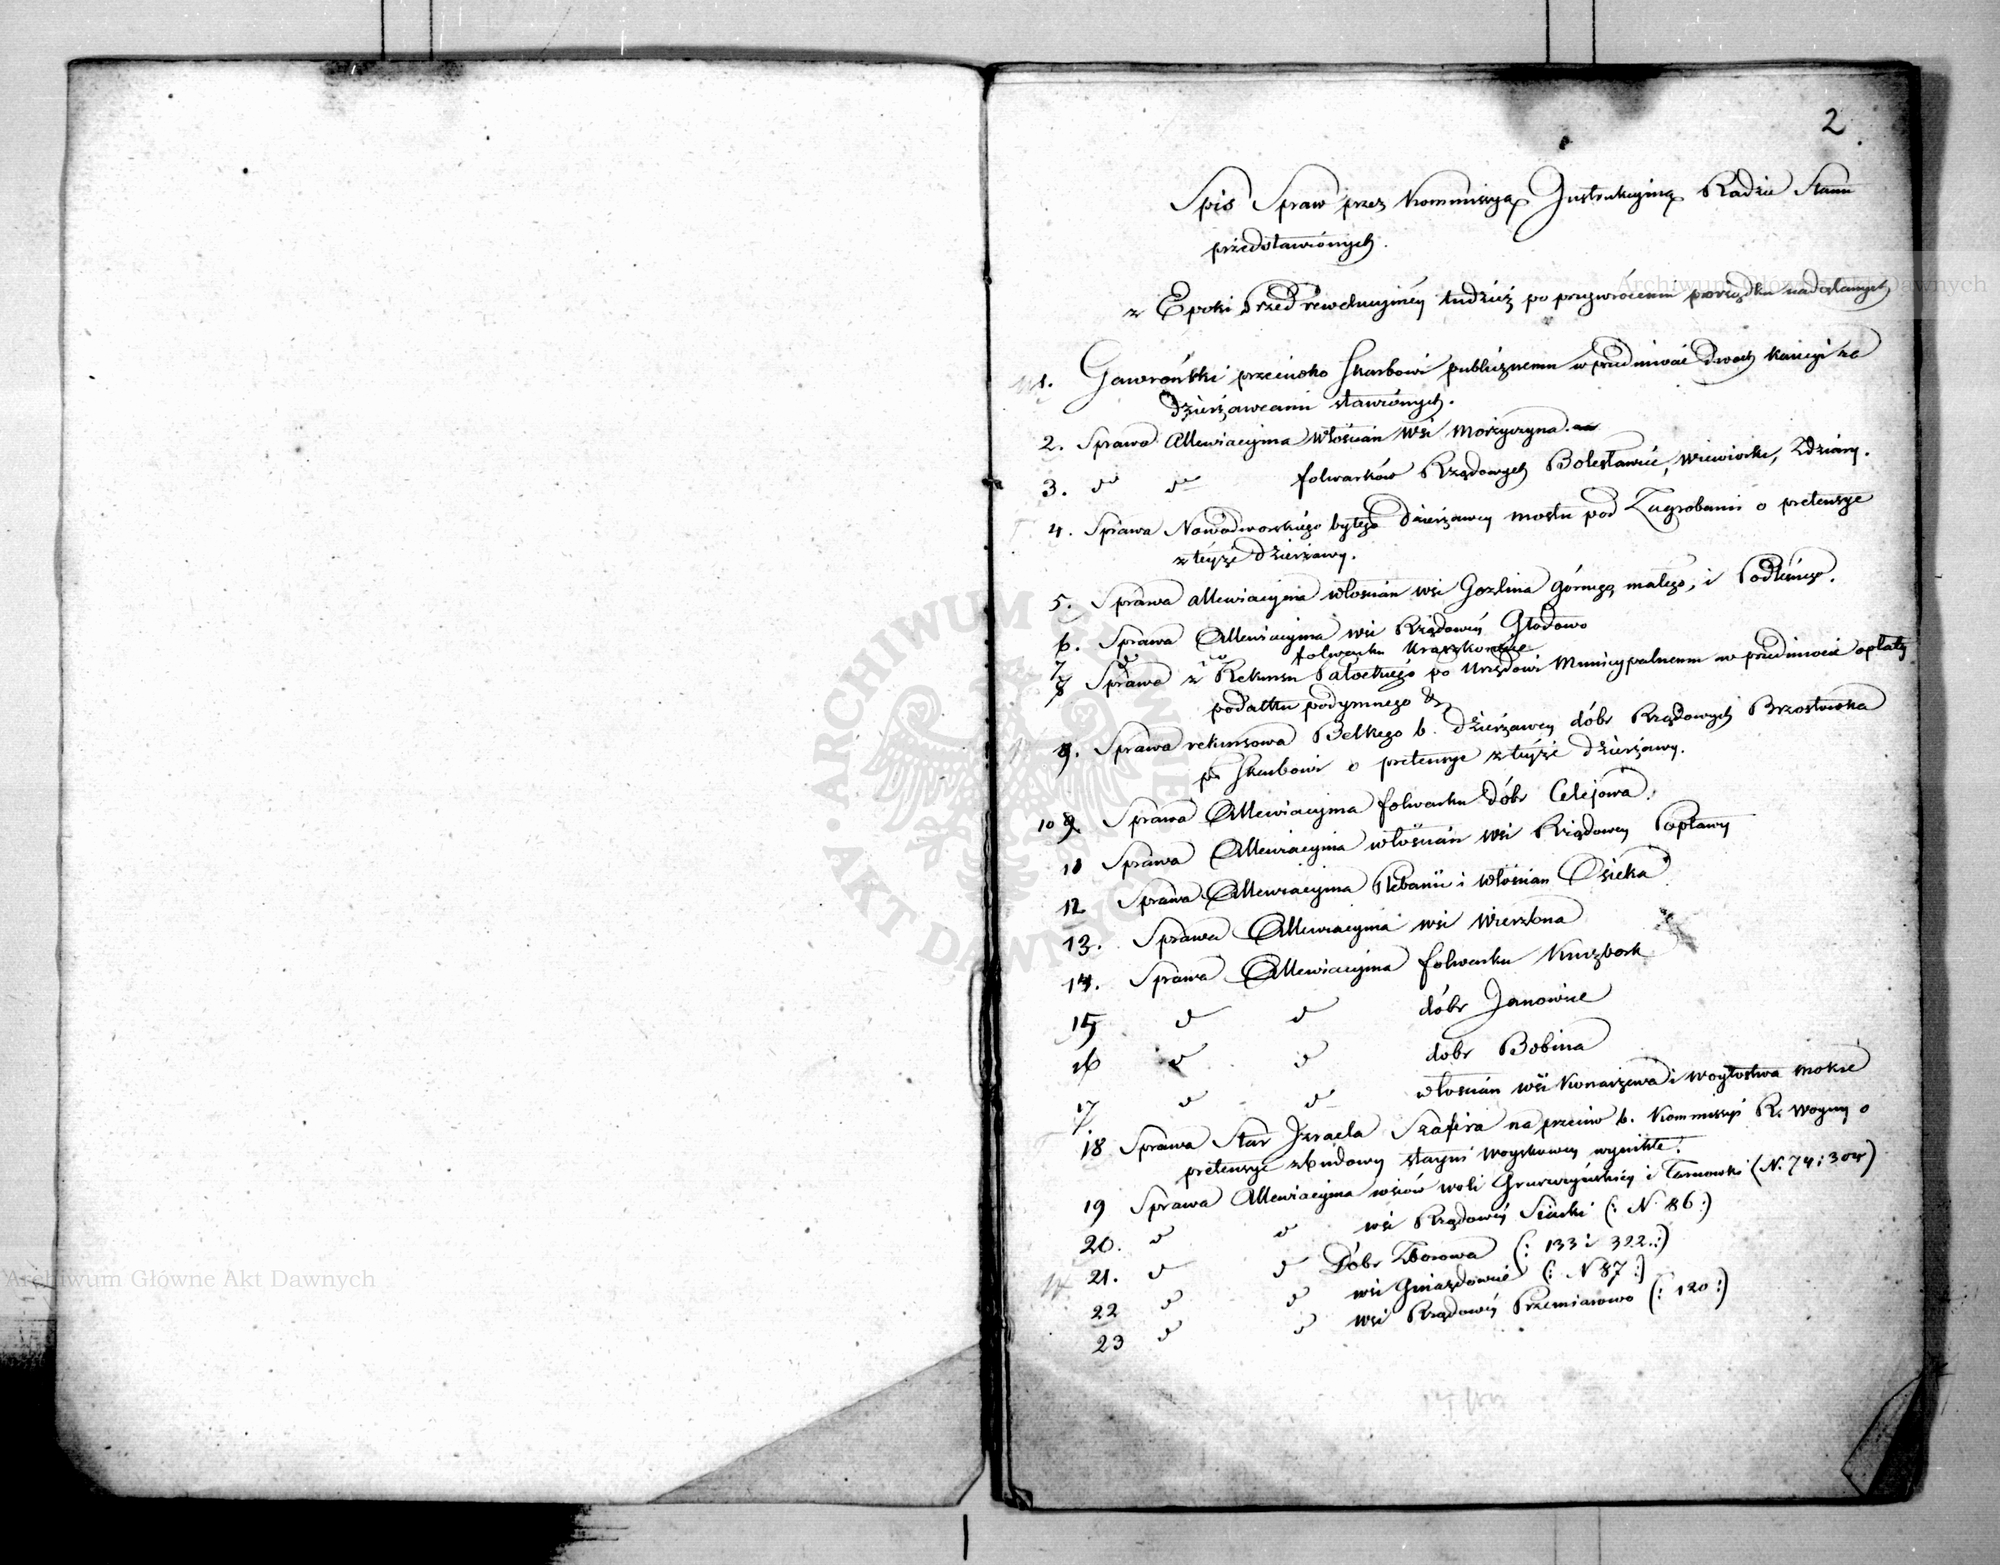 2
Spis Spraw przez Kommissyą Instrukcyiną Radzie Stanu
przedstawionych.
z Epoki Przed rewolucyiney tudzież po przywróceniu porządku nadesłanych
1. Gawroński przeciwko Skarbowi publicznemu w przedmiocie dwóch kaucyi za
dzierżawcami stawionych.
2. Sprawa Allewiacyjna włościan wsi Morzyczyna.
3. do do folwarków Rządowych Bolesławiec, Wiewiorka, Zdziary.
4. Sprawa Nowodworskiego byłego dzierżawcy mostu pod Zagrobami o pretensye
z teyże dzierżawy.
5. Sprawa allewiacyjna włościan wsi Gozlina górnego, małego, i Podleśnego.
6. Sprawa Allewiacyjna wsi Rządowey Głodowo
7 do do folwarku Uraszkowice
8 Sprawa z Rekursu Pałockiego po Urzędowi Municypalnemu w przedmiocie opłaty
podatku podymnego &
9. Sprawa rekursowa Belkego b. dzierżawcy dóbr Rządowych Brzostówka
po Skarbowi o pretensye z teyże dzierżawy.
10 Sprawa Allewiacyjna folwarku dóbr Celejowa.
11 Sprawa Allewiacyjna włościan wsi Rządowey Popławy
12 Sprawa Allewiacyjna Plebanii i włościan Osieka
13. Sprawa Allewiacyjna wsi Wierzbna
14. Sprawa Allewiacyjna folwarku Kuczbork
15 do do dóbr Janowice
16 do do dóbr Bobina
17 do do włościan wsi Konarzewa i woytostwa Mokre
18 Sprawa Star Izraela Szafira na przeciw b. Kommissyi R. Woyny o
pretensye z budowy stayni woyskowey wynikłe.
19 Sprawa Allewiacyjna wsiów Woli i Tarnowski (N. 74 i 304)
20. do do wsi Rządowey Siucki (: N. 86 :)
21. do do Dóbr Zborowa (: 133 i 322. :)
22 do do wsi Gniazdowie (: N 87 :)
23 do do wsi Rządowey Przemiarowo (: 120 :)
Archiwum Główne Akt Dawnych
Archiwum Główne Akt Dawnych
ARCHIWUM GŁÓWNE · AKT DAWNYCH ·